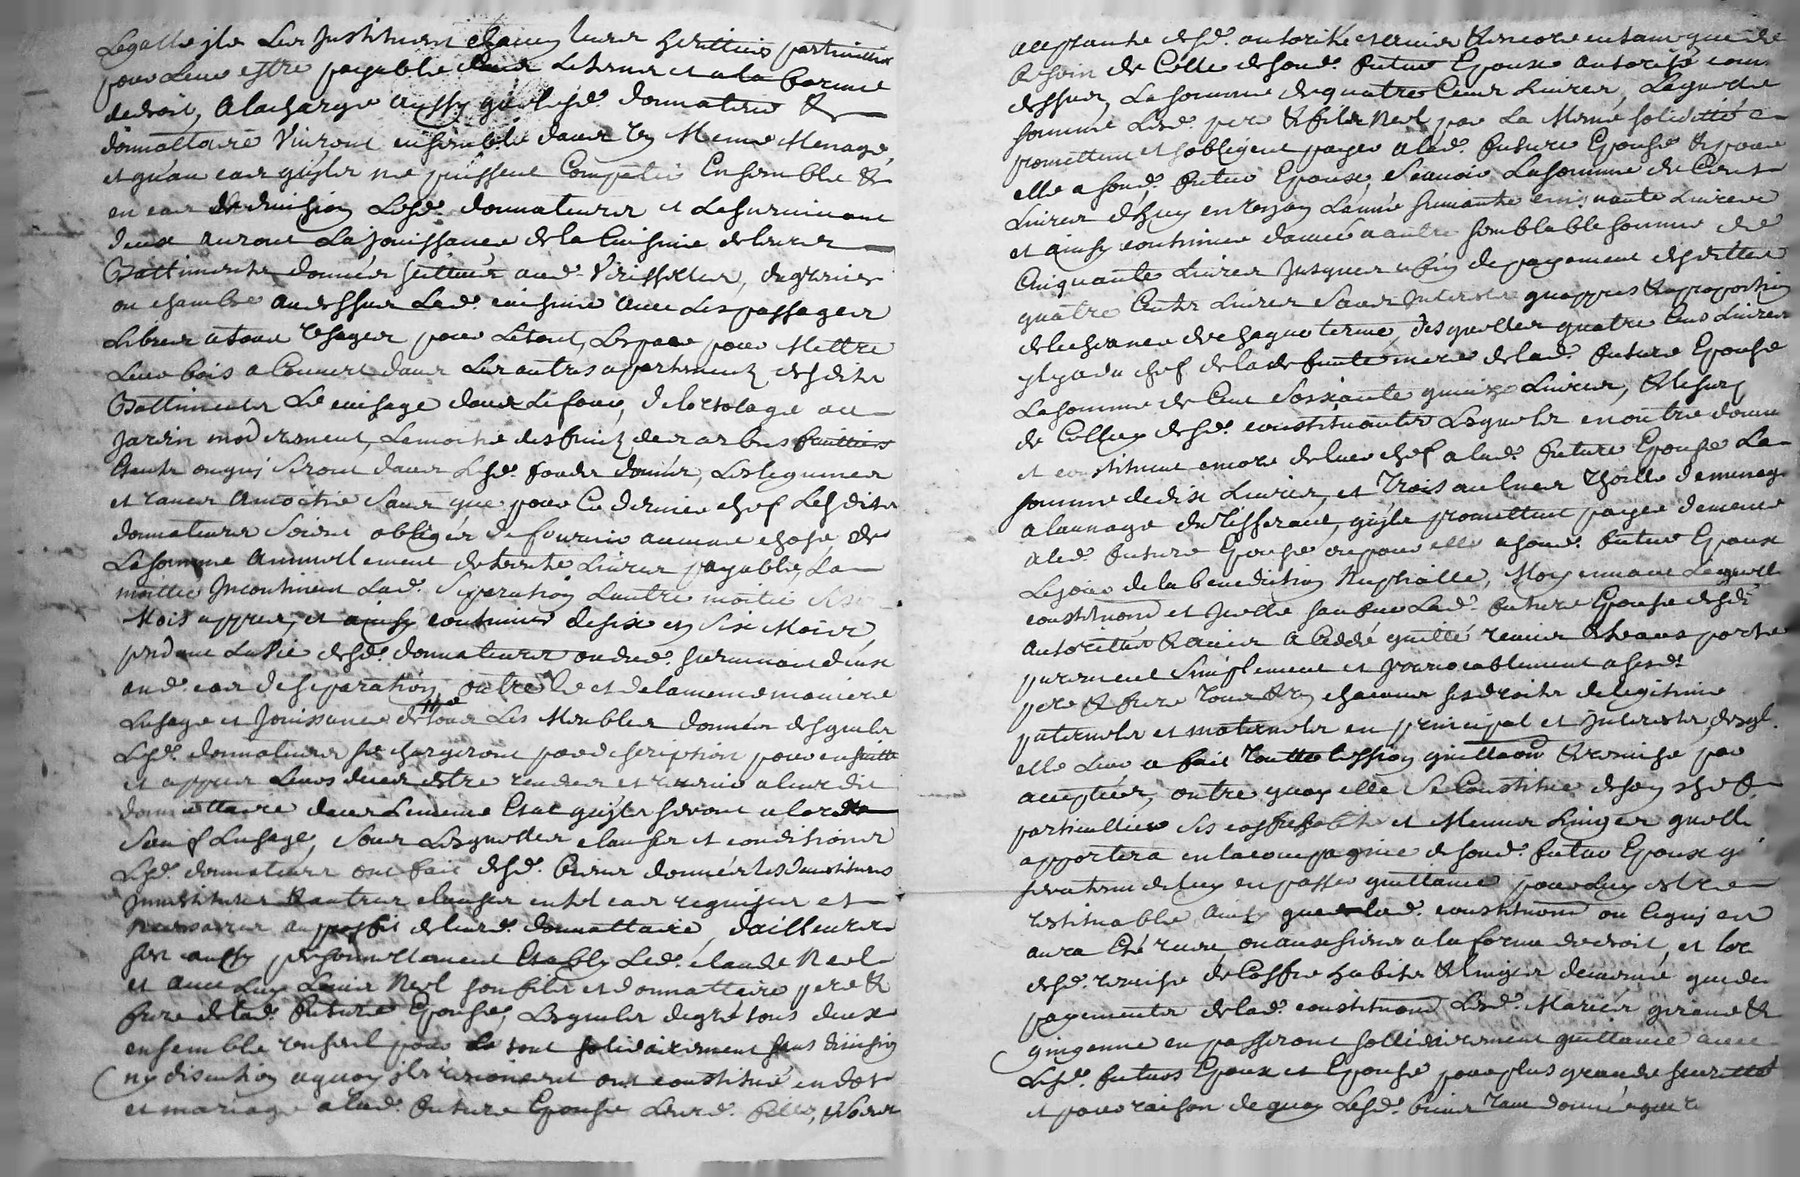 Legalle ils Les Instituent chacun leurs heritiers particuliers
pour Leur estre payable dans Le terme et a la forme
de droit, a la charge aussy que lesd. donnateurs &
donnattaire Vivront ensemble dans un Meme Menage,
et qu'au cas qu'ils ne puissent Compatir Ensemble &
en cas de division Lesd. donnateurs et Le survivant
d'eux auront La jouissance de la Cuisine de leurs
Battiments donnés scittués aud. du grenier
ou chambre au dessus Lad. cuisine avec Les passages
Libres a tous Usages pour Le tout, Espace pour Mettre
Leur bois a Couvert dans Les autres apartements desdits
Battiments Le cuisage dans Le four, de l'ortolage au
Jardin moderement, La moitié des fruits des arbres fruittiers
qui seront dans Lesd. fonds donnés, Les legumes
et raves a moitié sans que pour Ce dernier chef Lesdits
donnateurs soient obligés de fournir aucune chose de
La somme annuellement de trente Livres payable, La
moitié Incontinent Lad. Separation L'autre moitié six
Mois appres, et ainsy continuer de six en six Mois
pendant La Vie desd. donnateurs ou dud. survivant d'eux
aud. cas de separation, outre ce et de la meme maniere
L'usage et Jouissance de tous Les Meubles donnés desquels
Lesd. donnateurs se chargeront par description pour ensuitte
et appres Leurs deces estre rendus et remis a leur dit
donnattaire dans Le meme Etat qu'ils seront alors
Sauf L'usage, Sous Lesquelles clauses et conditions
Lesd. donnateurs ont fait desd. biens donnés les devestitures
Investitures & autres clauses en tel cas requises et
necessaires au proffit de leurd. donnattaire, d'ailleurs
s'est aussy personnellement Etably Led. claude Nerl
et avec Luy Nerl son fils et donnattaire pere &
frere de lad. future Epouse, Lesquels de gré tous deux
ensemble un seul pour Le tout solidairement sans division
ny discution a quoy ils renoncent ont constitué en dot
et mariage a lad. future Epouse Leurd. fille, &
acceptante desd. autorité et encore en tant que de
Besoin de Celle de sond. futur Epoux autorisé comme
dessus, La somme de quatre Cent Livres, Laquelle
somme Lesd. pere & fils Nerl par La Meme solidité
promettent et s'obligent payer a lad. future Epouse & pour
elle a sond. futur Epoux, Scavoir La somme de Cent
Livres d'huy en un an L'année suivante cinquante Livres
et ainsy continuer d'année a autre semblable somme de
Cinquante Livres Jusques a fin de payement desdittes
quatre Cents Livres Sans Interets qu'appres & a proportion
de l'echeance de chaque terme, desquelles quatre Cens Livres
il y a du chef de la deffunte mere de lad. future Epouse
La somme de Cent Soixante quinze Livres, & le surplus
de Celluy desd. constituants Lesquels en outre donnent
et constituent encore de leur chef a lad. future Epouse La
somme de dix Livres, et Trois aulnes Thoille de menage
a l'aunage de Tisserant, qu'ils promettent payer de meme
a lad. future Epouse ou pour elle a sond. futur Epoux
Le jour de la benediction Nuptialle, Moyennant Laquelle
constitution et Icelle sauve Lad. future Epouse desd.
autorittés & avis a Ceddé quitté remis & transporté
purement Simplement et Irrevocablement a sesd.
pere & frere tous & un chacuns ses droits de legitime
paternels et maternels en principal et Interets, desquels
elle Leur a fait toutte Cession quittance & remise par
acceptée, outre quoy elle Se Constitue de son chef
particullier Ses coffre habits et Menus Linges quelle
apportera en la compagnie de sond. futur Epoux qui
sera tenu de luy en passer quittance pour Luy estre
restituable ainsy que lad. constitution ou a qui en
aura Eté receu, ou aux siens a la forme de droit, et lors
desd. remise de Coffre habits & linges de meme que des
payements de lad. constitution Lesd. Mariés giraud &
gingenne en passeront sollidairement quittance avec
Lesd. futurs Epoux et Epouse pour plus grande seuretté
et pour raison de quoy Lesd. biens tant donnés que